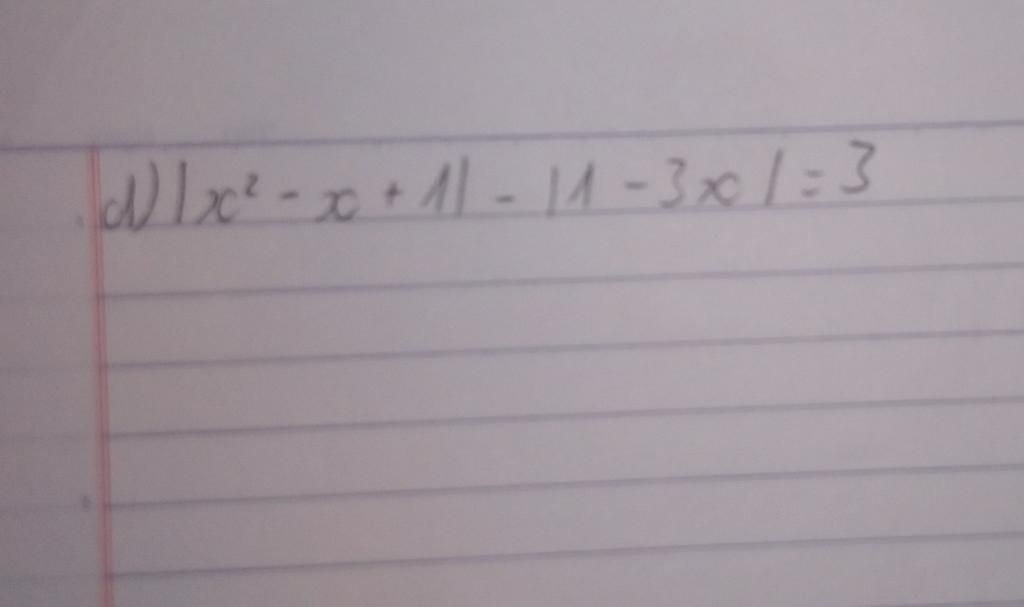 d) |x² - x + 1| - |1 - 3x| = 3